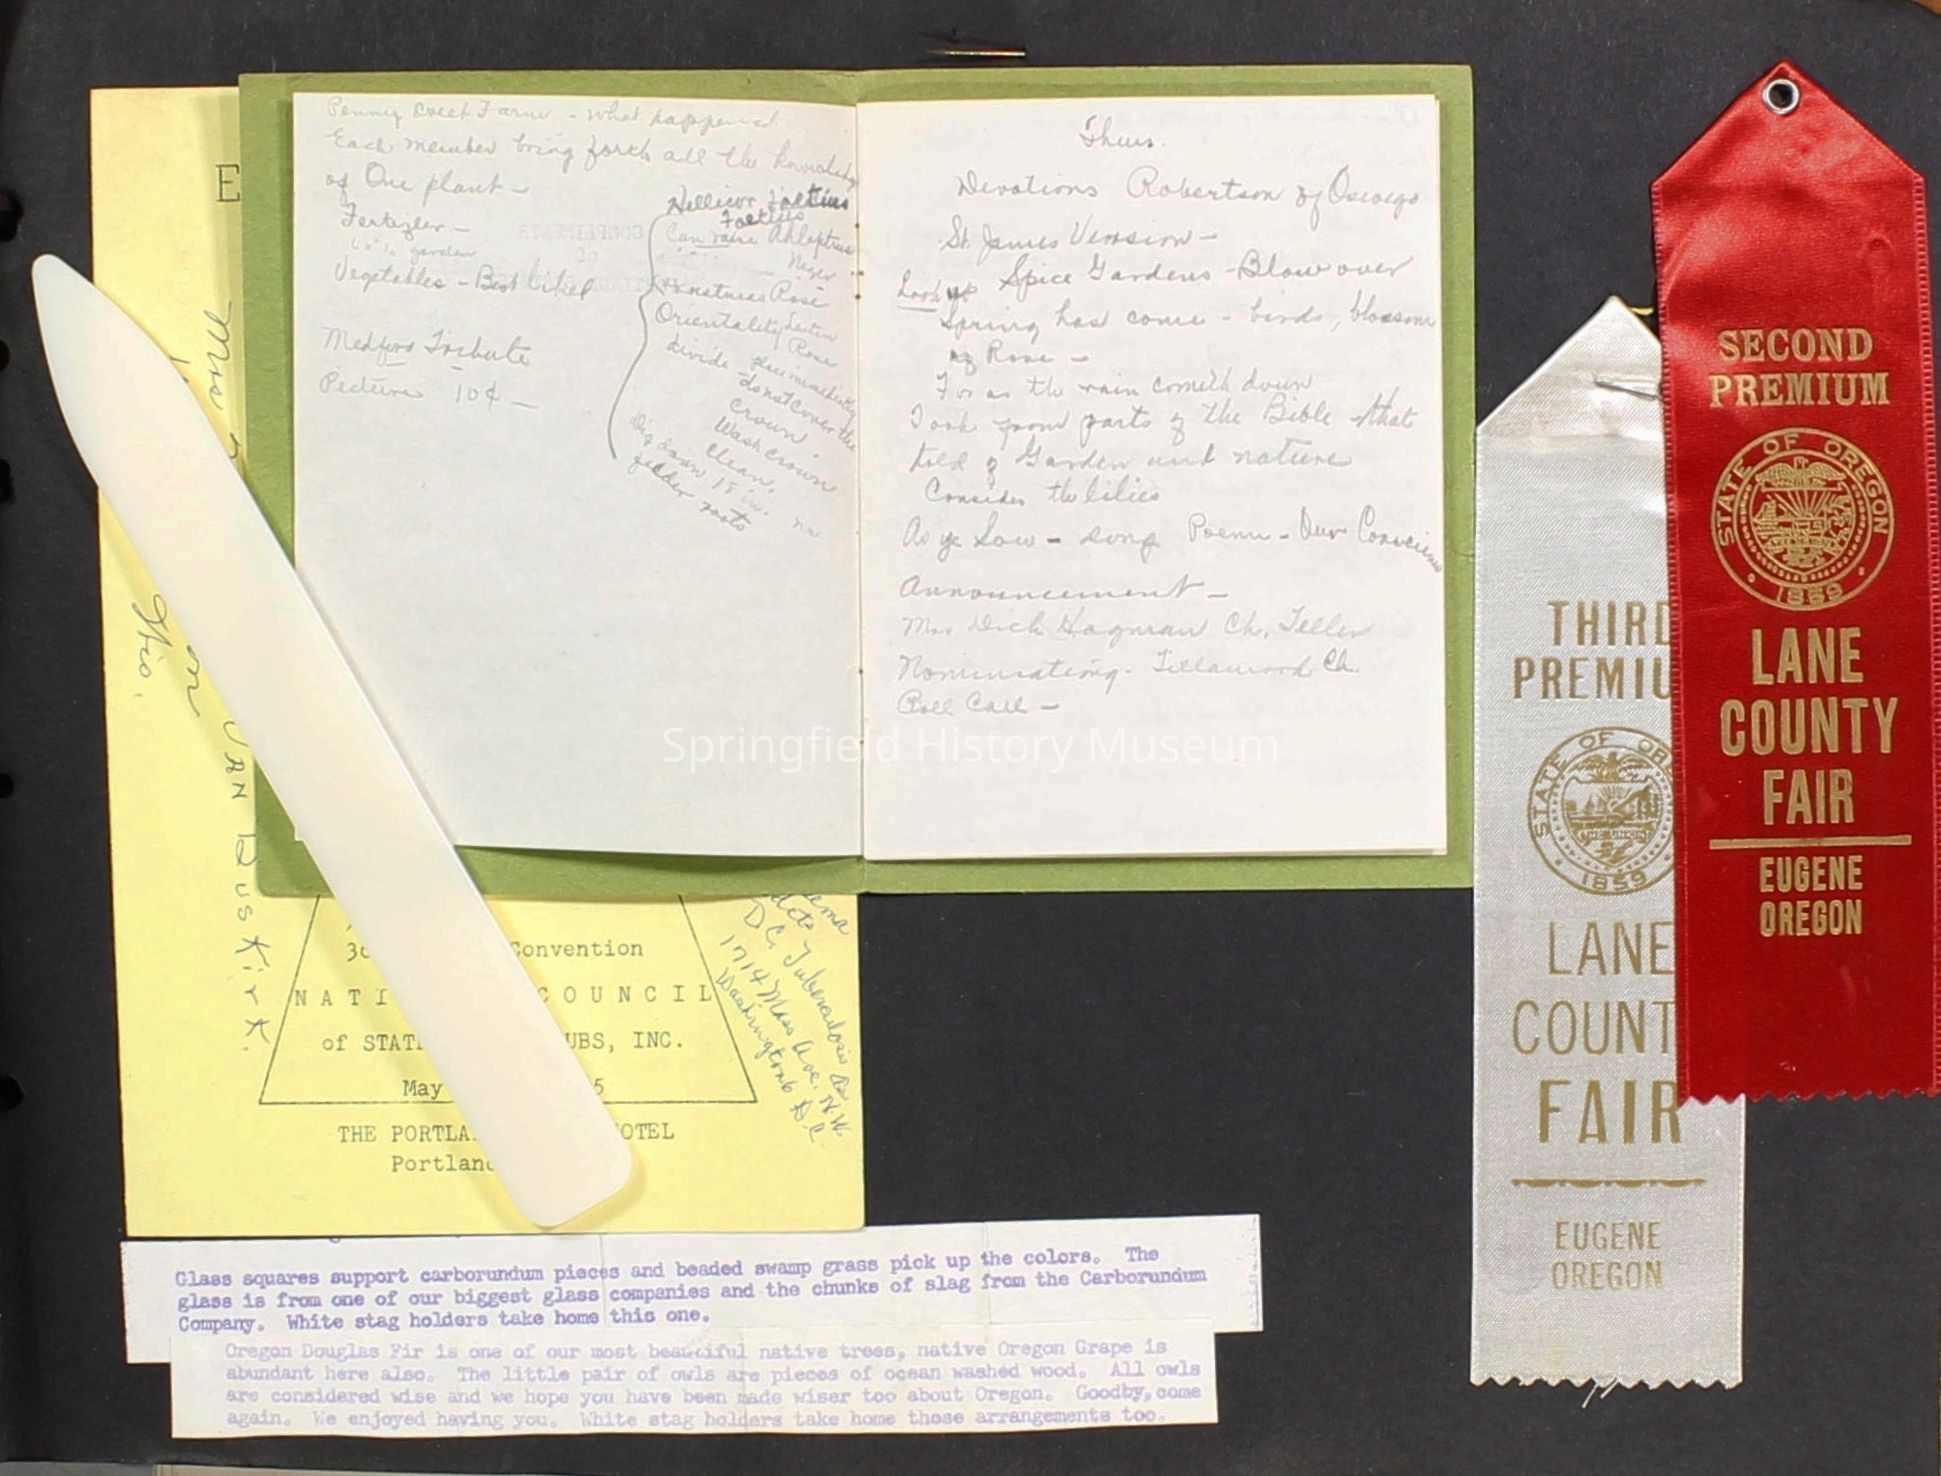 Penny Creek Farm - what happened
Each member bring forth all the knowledge
of One plant -
Fertizler -
garden
Vegetables - Best liked
Medford Tribute
Picture 10¢ -
Foetius
Can raise
Niger
Rose
Orientality Lenten
Rose
divide place immediately
do not cover the
crown.
Wash crown
clean.
Dig down 18 in. no
feeder roots
Thurs.
Devotions Robertson of Oswego
St. James Version -
Look up Spice Gardens - Blow over
Spring has come - birds, blossom
of Rose -
For as the rain cometh down
Took from parts of the Bible that
told of Garden and nature
Consider the lilies
As ye Sow - song Poem - Our
Announcement -
Mrs Dick Hagman Ch. Teller
Nominating - Ch.
Roll Call -
Springfield History Museum
E
Mrs
on
VAN BUSKirK.
Ohio.
Convention
NATI COUNCIL
of STAT UBS, INC.
May 5
THE PORTLA OTEL
Portland
D.C. Tuberculosis
1714 Mass Ave. N.W.
Washington 6 D.C.
SECOND
PREMIUM
STATE OF OREGON
1859
LANE
COUNTY
FAIR
EUGENE
OREGON
THIRD
PREMIU
STATE OF ORE
1859
LANE
COUNT
FAIR
EUGENE
OREGON
Glass squares support carborundum pieces and beaded swamp grass pick up the colors. The
glass is from one of our biggest glass companies and the chunks of slag from the Carborundum
Company. White stag holders take home this one.
Oregon Douglas Fir is one of our most beautiful native trees, native Oregon Grape is
abundant here also. The little pair of owls are pieces of ocean washed wood. All owls
are considered wise and we hope you have been made wiser too about Oregon. Goodby, come
again. We enjoyed having you. White stag holders take home these arrangements too.